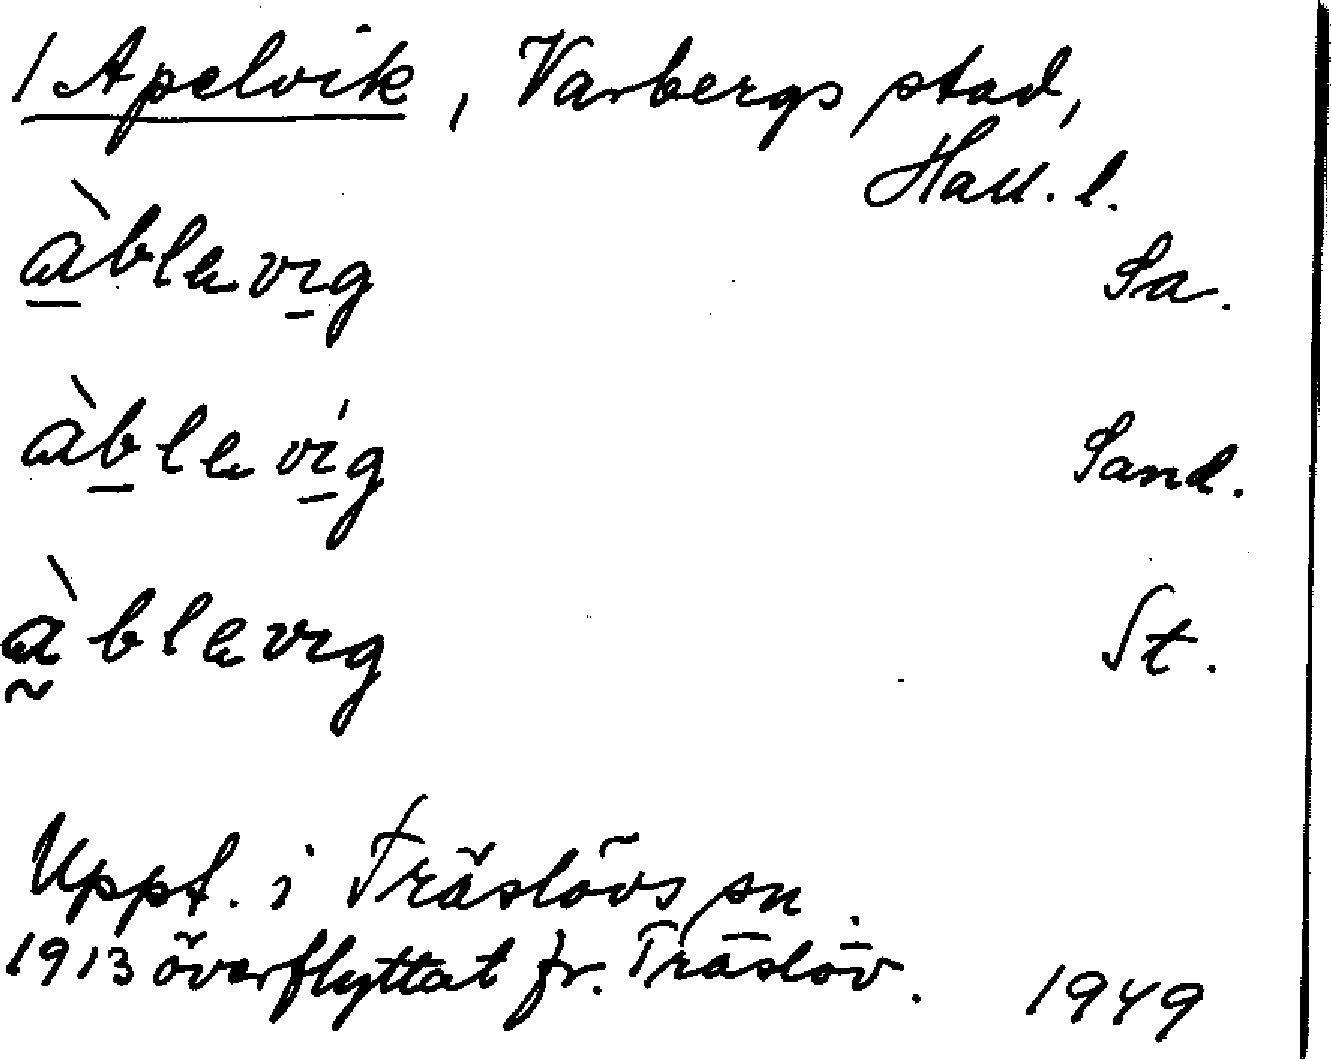 1 Apelvik, Varbergs stad,
Hall. l.
àblavıg Sa.
àblavíg Sand.
àblavıg St.
Uppt. i Träslövs sn.
1913 överflyttat fr. Träslöv. 1949